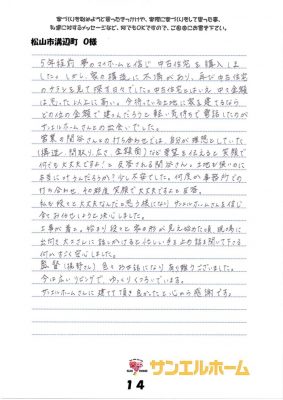 家づくりを始めようと思ったきっかけや、実際に家づくりをして思った事、
私達に対するメッセージなど、何でもOKですので、ご自由にお書き下さい。
松山市溝辺町 O様
5年程前 夢のマイホームと信じ 中古住宅を購入しま
した。しかし、家の構造に不満があり、再び中古住宅
のチラシを見て探す日々でした。中古住宅とはいえ中々金額
は思った以上に高い。今持っている土地に家を建てるなら
どの位の金額で建つんだろうと軽い気持ちで電話したのが
サンエルホームさんとの出会いでした。
営業の関谷さんとの打ち合わせでは、自分が理想としていた
(構造、間取り、広さ、金額面)など希望を伝えると笑顔で
何でも大丈夫ですよ!と返答される関谷さん。土地も狭いのに
本当に叶うんだろうか?少し不安でした。何度か事務所での
打ち合わせ その都度 笑顔で大丈夫ですよと返答。
私も段々と大丈夫なんだと思う様になりサンエルホームさんを信じ
全てお任せしようと決心しました。
工事が着々、始まり段々と家の形が見え始めた頃 現場に
出向き大工さんに話しかけると忙しい手を止め話を聞いて下さる
何かすごく安心しました。
監督( さん)色々お世話になり有り難うございました。
今は広いリビングで、ゆっくりくつろいでいます。
サンエルホームさんに建てて頂き良かったと心から感謝です。
サンエルホーム
14